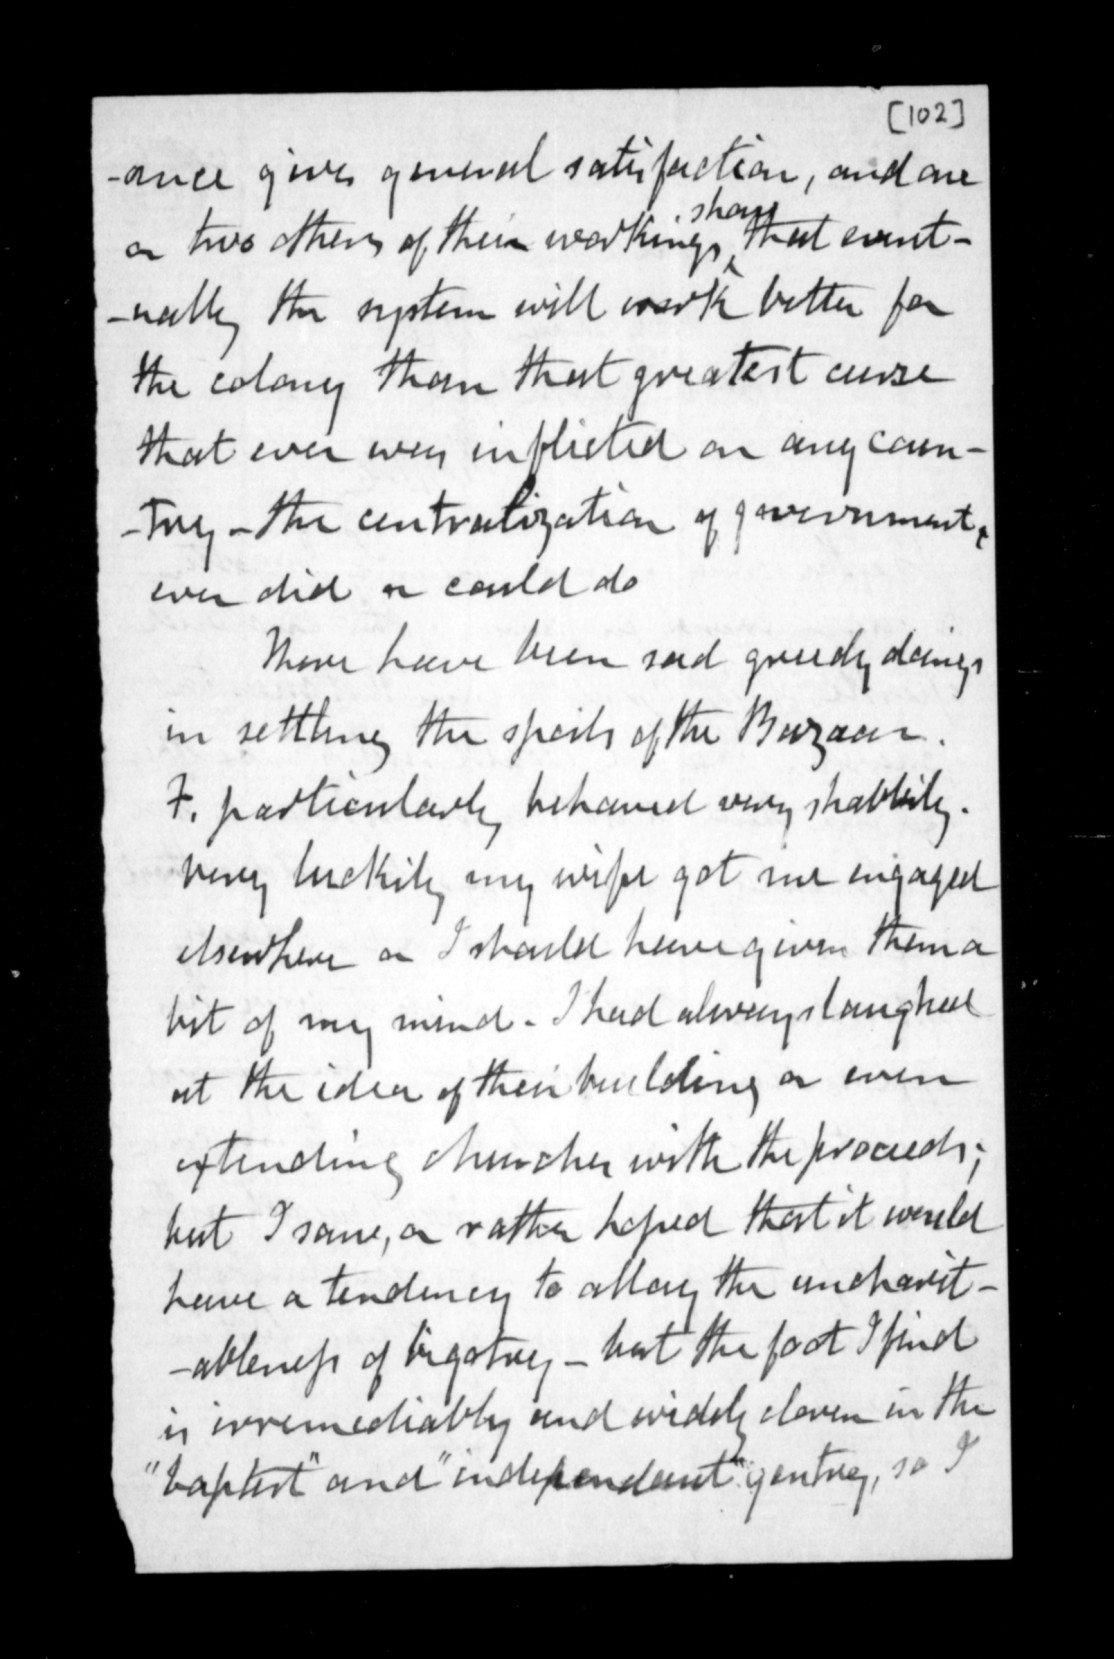 [102]
-ance gives general satisfaction, and one
or two others of their workings show that event-
-ually the system will work better for
the colony than that greatest curse
that ever was inflicted on any coun-
-try - the centralization of government,
ever did or could do
There have been sad greedy doings
in settling the spoils of the Bazaar.
F. particularly behaved very shabbily.
very luckily my wife got me engaged
elsewhere or I should have given them a
bit of my mind. I had always laughed
at the idea of their building or even
extending churches with the proceeds;
but I saw, or rather hoped that it would
have a tendency to allay the uncharit-
-ableness of bigotry - but the foot I find
is irremediably and widely cloven in the
"baptist" and "independant" gentry, so I